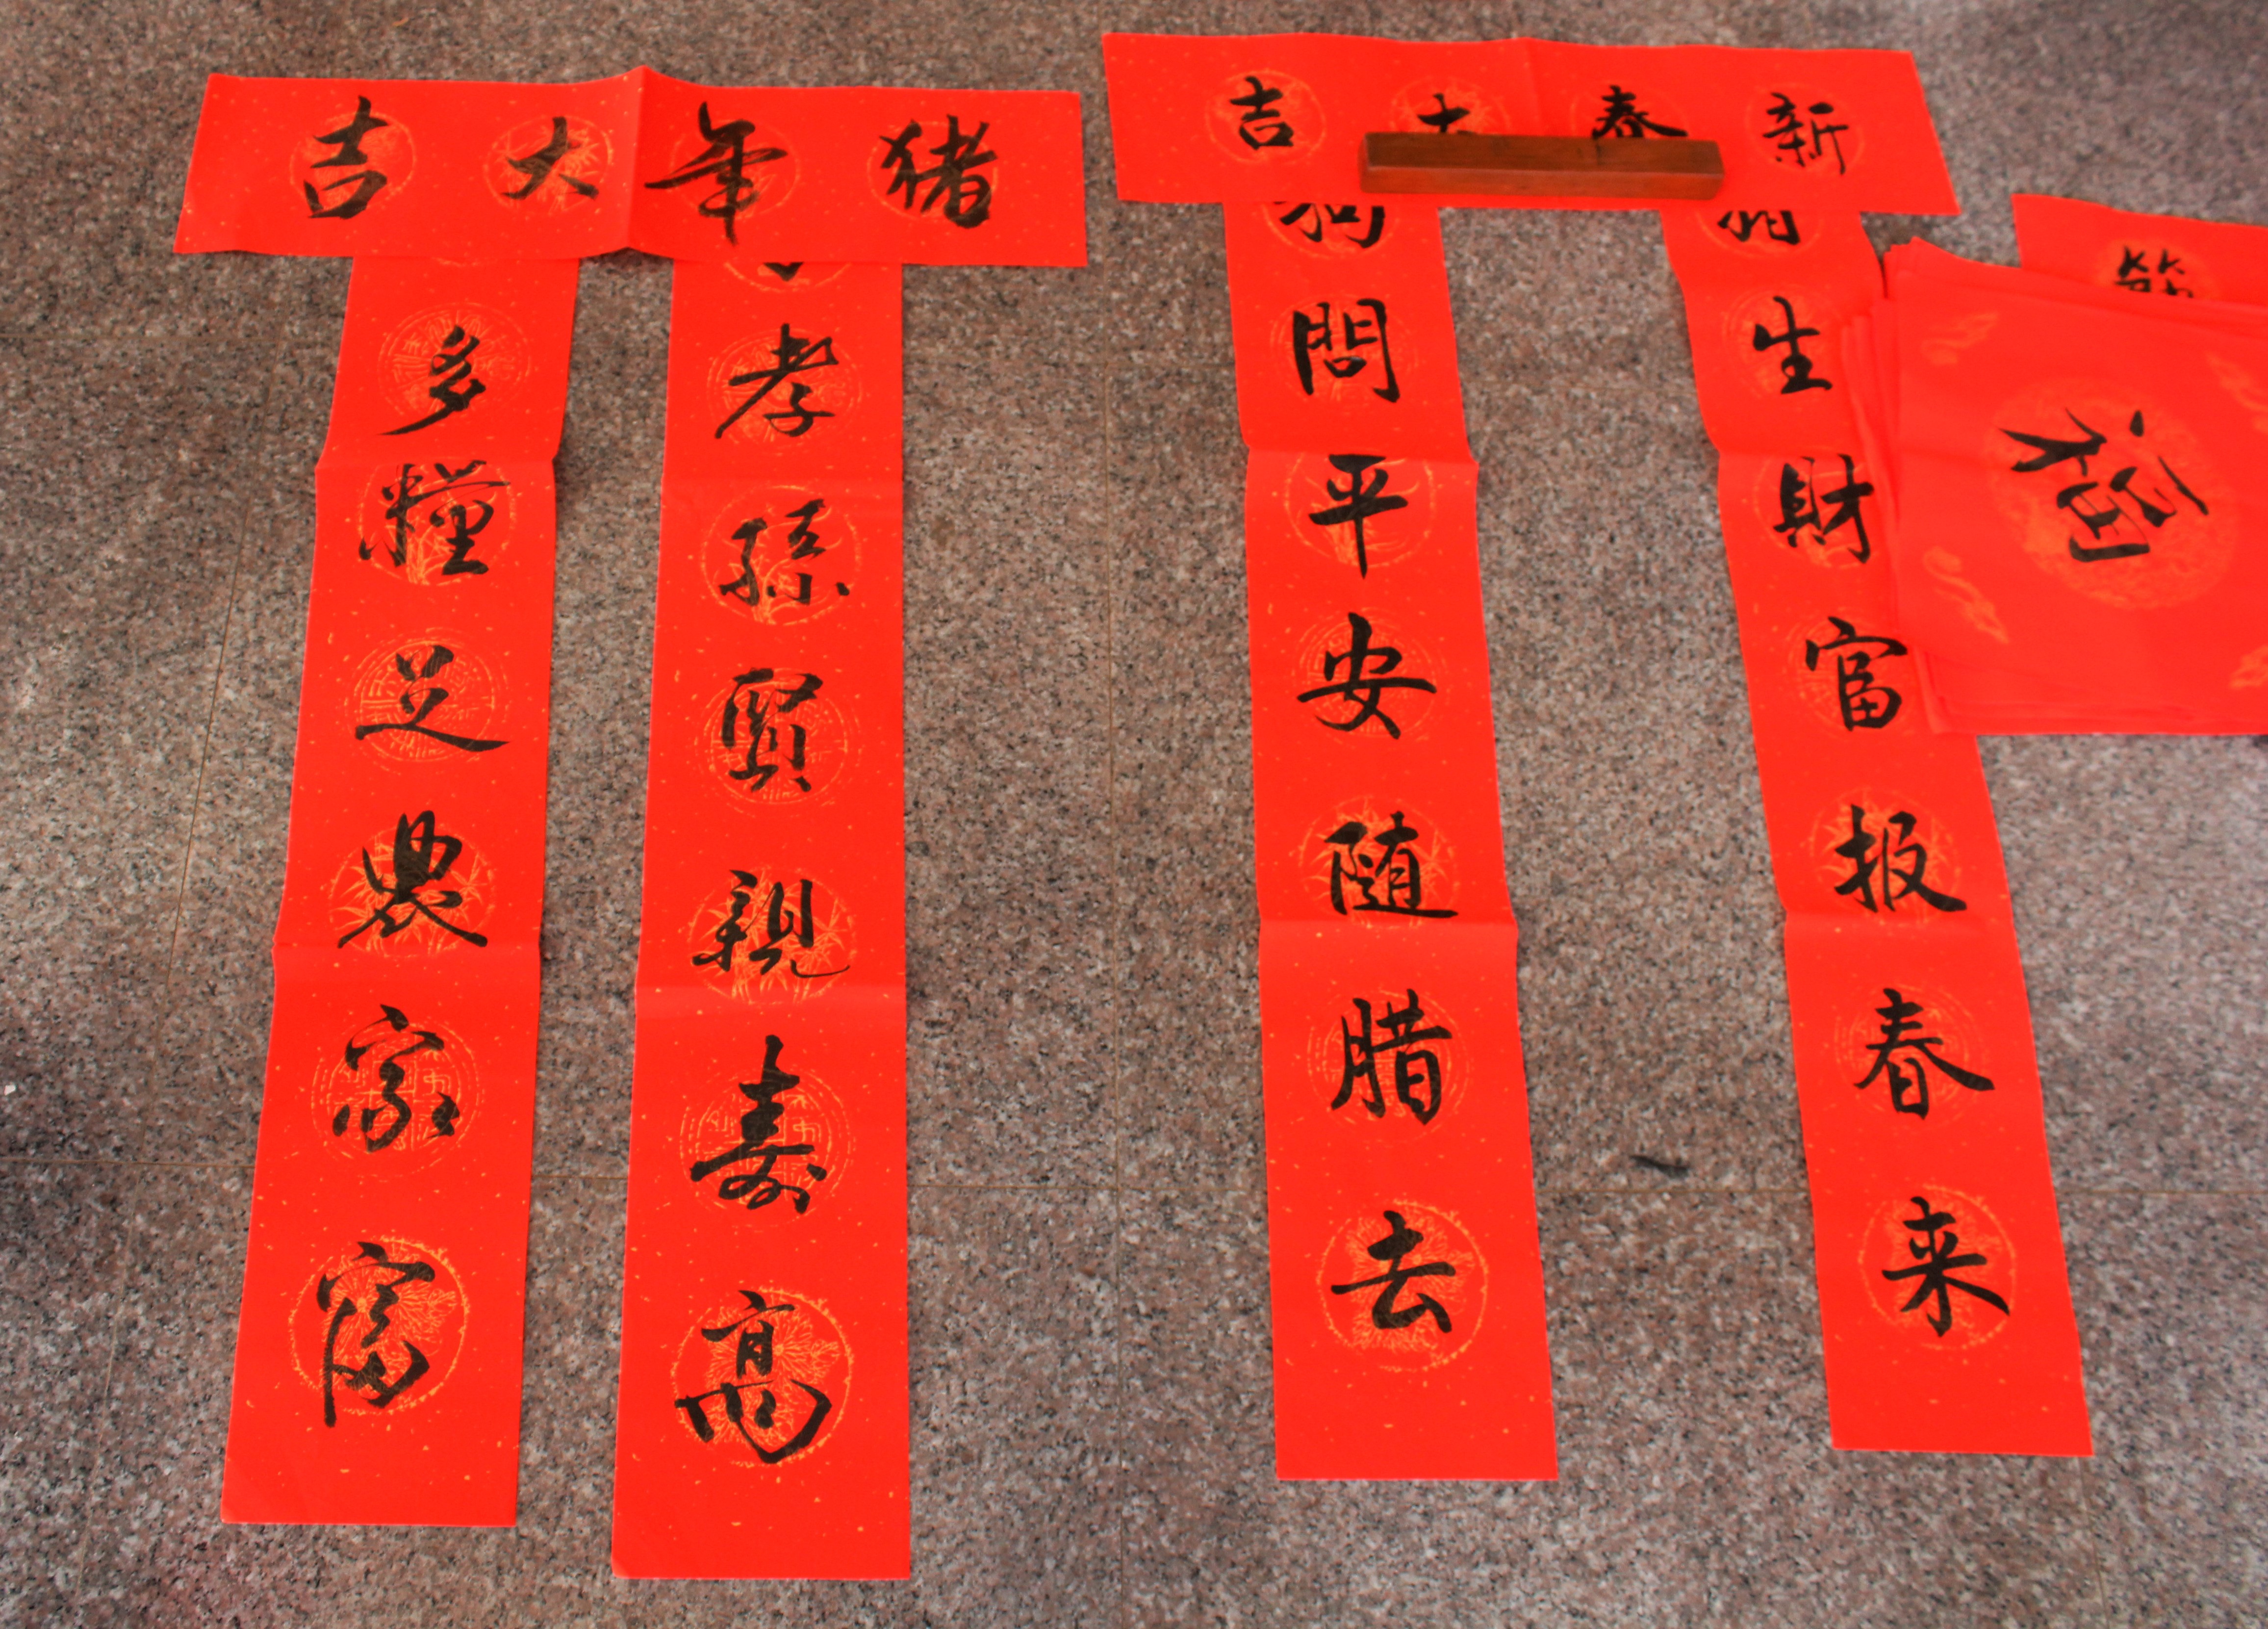 猪年大吉
孝孫賢親壽高
多糧足農家富
新春大吉
生財富报春来
狗問平安随腊去
福